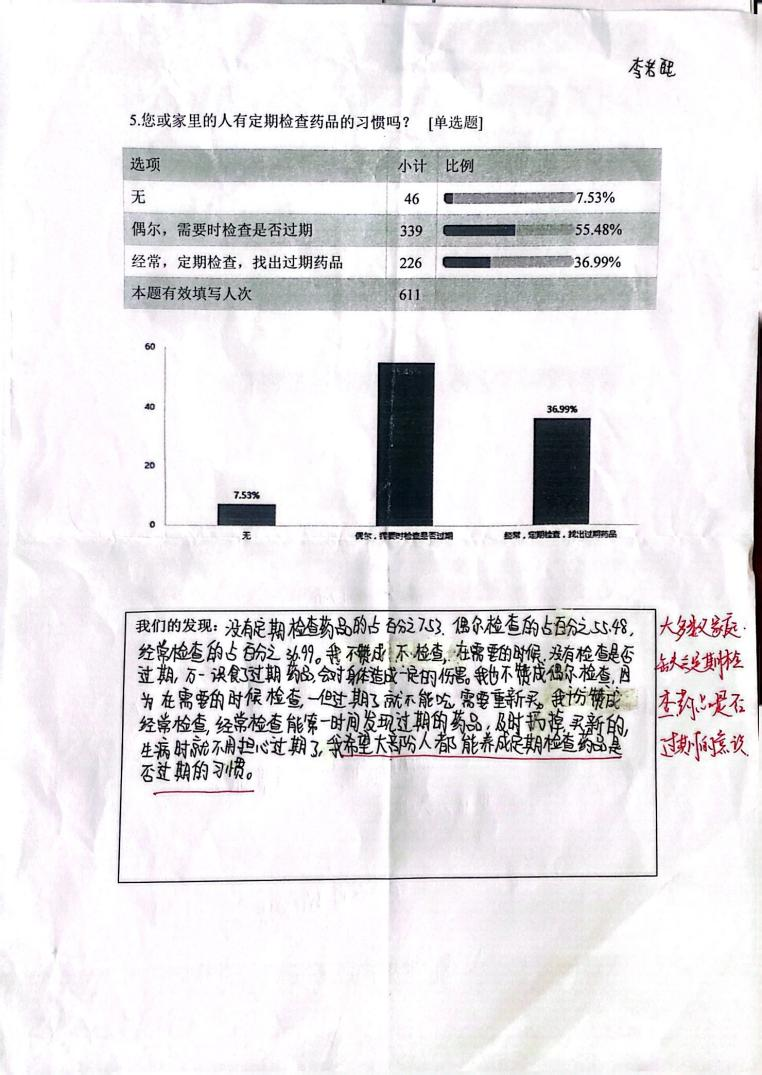 5.您或家里的人有定期检查药品的习惯吗？ [单选题]
选项 小计 比例
无 46 7.53%
偶尔，需要时检查是否过期 339 55.48%
经常，定期检查，找出过期药品 226 36.99%
本题有效填写人次 611
60
40
20
0
7.53%
55.48%
36.99%
无
偶尔，需要时检查是否过期
经常，定期检查，找出过期药品
我们的发现：没有定期检查药品的占百分之7.53，偶尔检查的占百分之55.48，
经常检查的占百分之36.99。我不赞成不检查，在需要的时候，没有检查是否
过期，万一误食了过期药品，会对身体造成一定的伤害。我也不赞成偶尔检查，因
为在需要的时候检查，一但过期了就不能吃，需要重新买。我十分赞成
经常检查，经常检查能第一时间发现过期的药品，及时扔掉，买新的，
生病时就不用担心过期了，我希望大部分人都能养成定期检查药品是
否过期的习惯。
大多数家庭
缺乏定期检
查药品是否
过期的意识